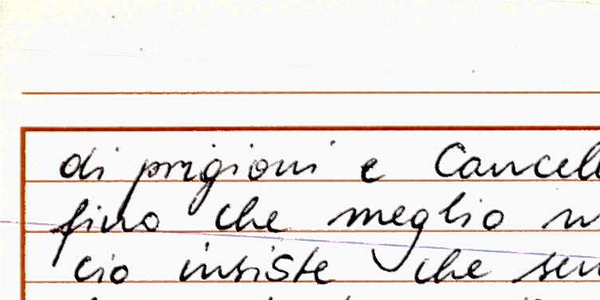 di prigioni e Cancell
fino che meglio
cio insiste che